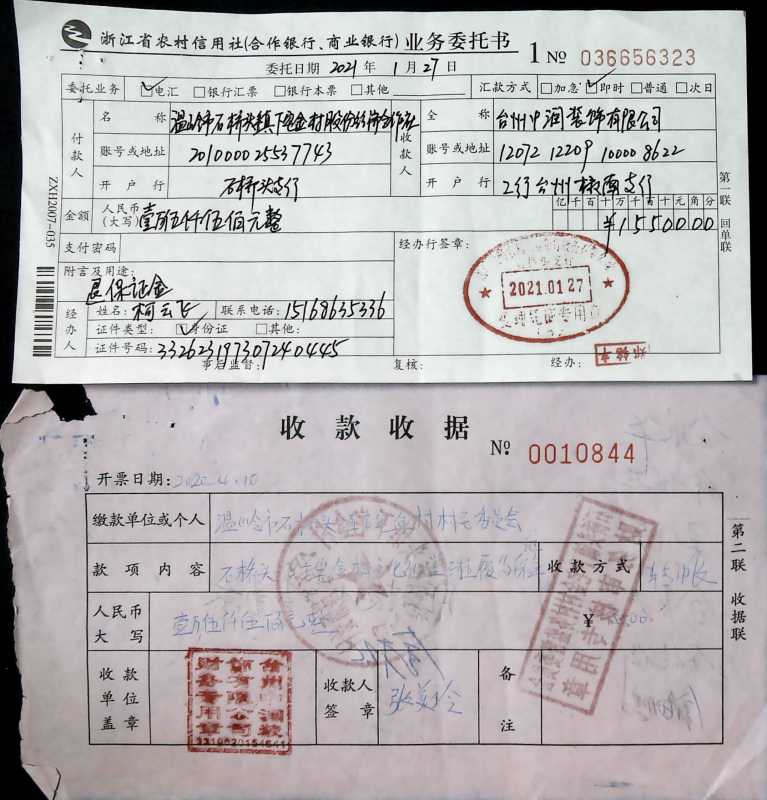 浙江省农村信用社(合作银行、商业银行) 业务委托书 1 № 036656323
委托日期 2021 年 1 月 27 日
委托业务 ☑电汇 □银行汇票 □银行本票 □其他 汇款方式 □加急 ☑即时 □普通 □次日
付款人 名称 温岭市石桥头镇下宅金村股份经济合作社 收款人 全称 台州中润装饰有限公司
账号或地址 201000025537743 账号或地址 12072 12209 10000 8622
开户行 石桥头支行 开户行 工行台州椒南支行
金额 人民币(大写) 壹万伍仟伍佰元整 亿千百十万千百十元角分 ¥1550000
支付密码 经办行签章:
附言及用途:
退保证金
2021.01.27
受理凭证专用章
经办人 姓名: 柯云飞 联系电话: 15169635336
证件类型: ☑身份证 □其他:
证件号码: 332623197307240445
事后监督: 复核: 经办:
ZXH2007-035
第一联 回单联
收款收据 № 0010844
开票日期: 2020.4.10
缴款单位或个人 温岭市石桥头 村村民委员会
款项内容 石桥头 收款方式
人民币大写 壹万伍仟伍佰元整 ¥
收款单位盖章 收款人签章 张美玲 备注
财务专用章
3310020154641
第二联 收据联